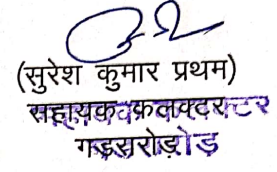 (सुरेश कुमार प्रथम)
सहायक कलक्टर
गडरारोड़